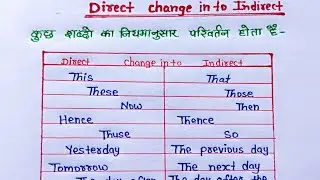 Direct change in to Indirect
कुछ शब्दो का नियमानुसार परिवर्तन होता है-
Direct change in to Indirect
This That
These Those
Now Then
Hence Thence
Thuse So
Yesterday The previous day
Tomorrow The next day
The day after the